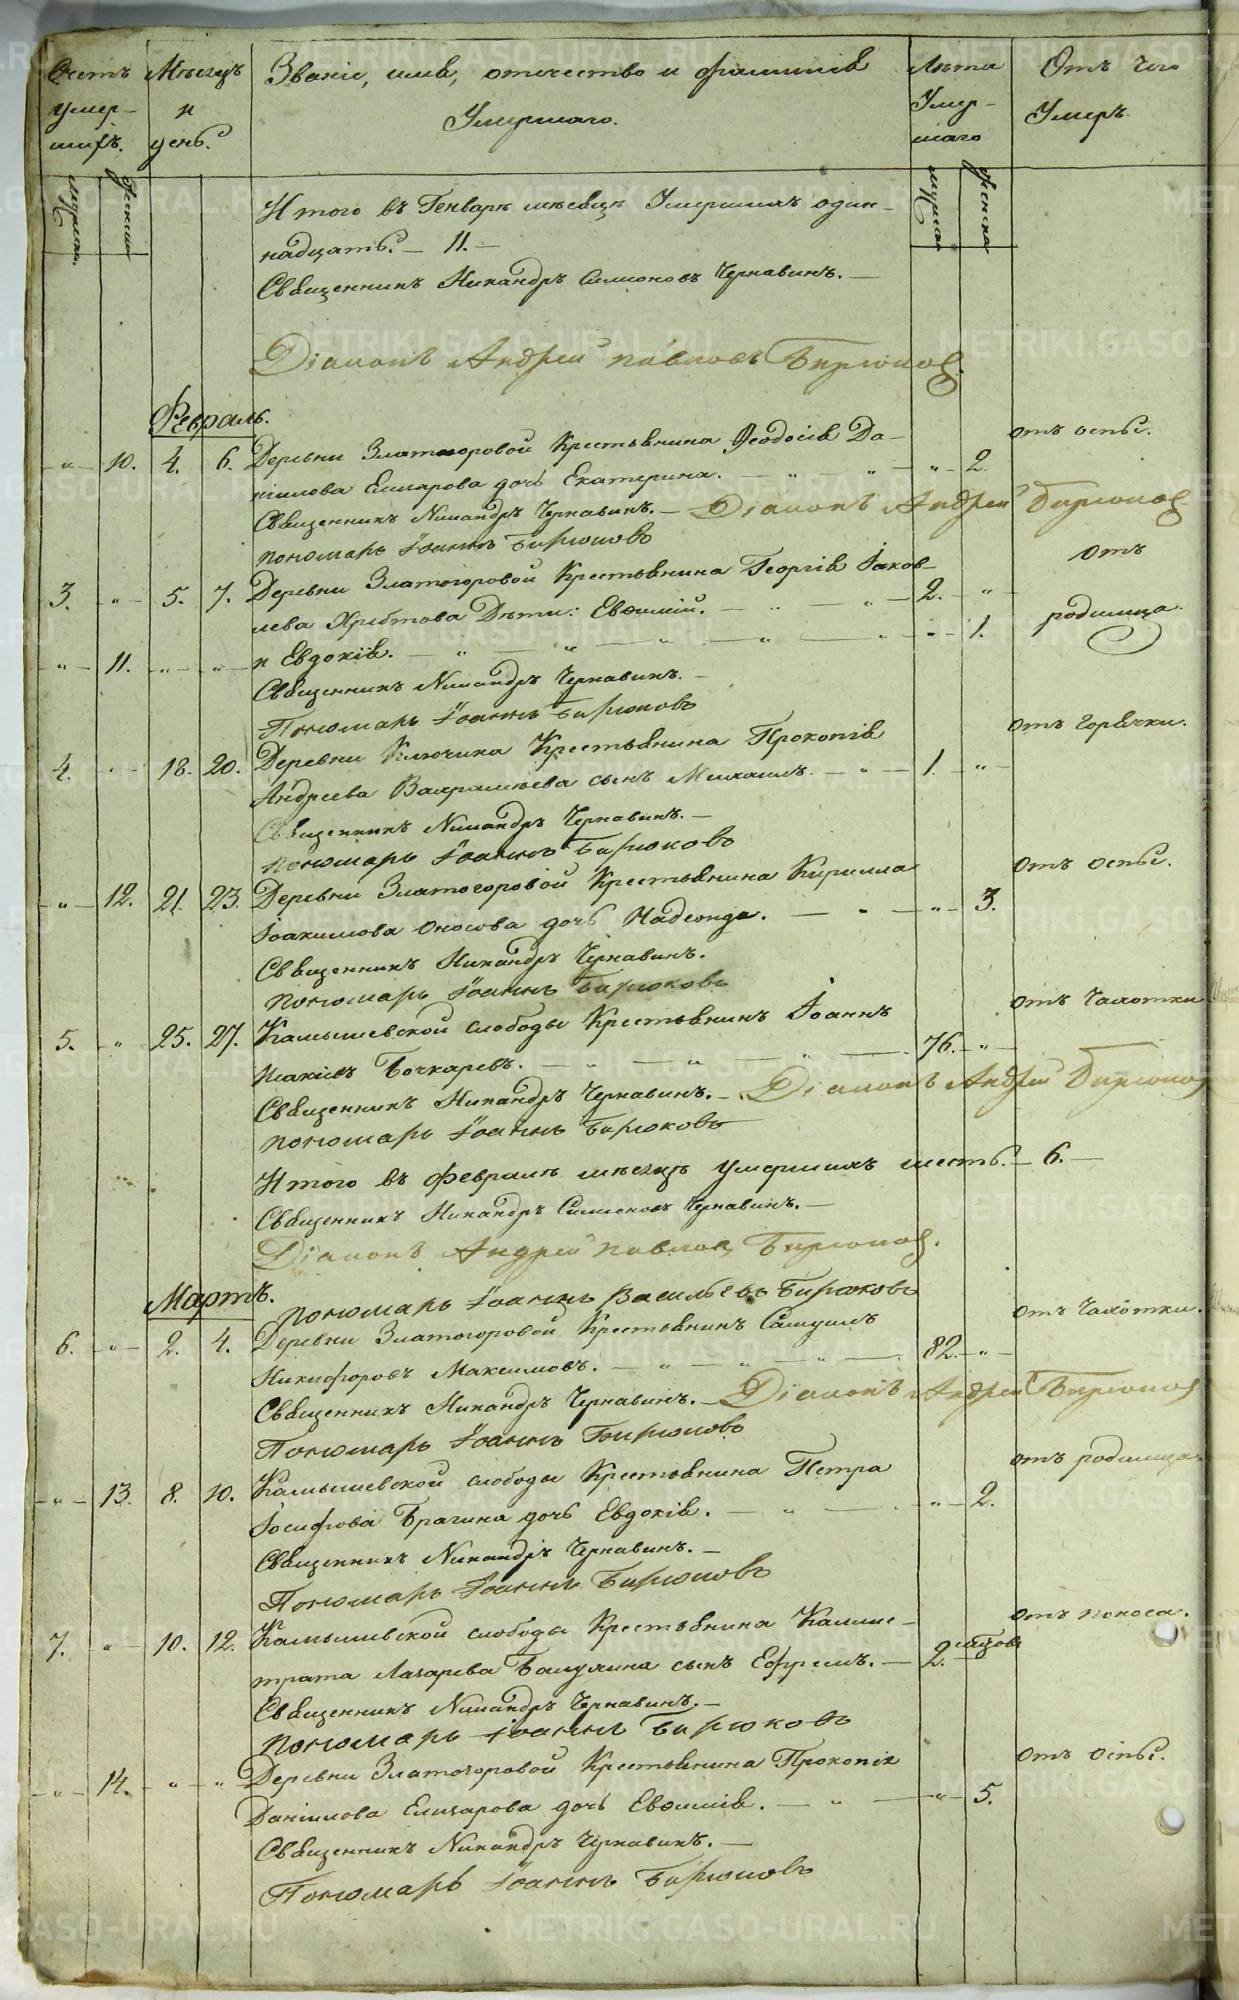 Счетъ умер-шихъ.
Мѣсяцъ и день.
Званіе, имя, отечество и фамилія
Умершаго.
Лѣта Умер-шаго
Отъ чего Умеръ.
мужска.
женска
мужска
женска
Итого въ Генварѣ мѣсяцѣ Умершихъ один-
надцать. — 11. —
Священникъ Никандръ Симоновъ Чернавинъ. —
Діаконъ Андрей Павловъ Бирюков.
Февраль.
— " — 10. 4. 6. Деревни Златогоровой Крестьянина Ѳеодосія Да- отъ оспы.
ніилова Елизарова дочь Екатерина. — " — " — 2.
Священникъ Никандръ Чернавинъ. — Діаконъ Андрей Бирюков
пономарь Іоаннъ Бирюковъ
3. — " — 5. 7. Деревни Златогоровой Крестьянина Георгія Іаков- 2. — " — отъ
лева Хребтова Дѣти: Евѳимій. — " — " — родимца.
— " — 11. — " — " — и Евдокія. — " — " — " — " — 1.
Священникъ Никандръ Чернавинъ. —
Пономарь Іоаннъ Бирюковъ
4. — " — 18. 20. Деревни Ключика Крестьянина Прокопія отъ горячки.
Андреева Вахрамеева сынъ Михаилъ. — " — 1. — " —
Священникъ Никандръ Чернавинъ. —
пономарь Іоаннъ Бирюковъ
— " — 12. 21. 23. Деревни Златогоровой Крестьянина Кирилла отъ оспы.
Іоакимова Оносова дочь Надежда. — " — " — 3.
Священникъ Никандръ Чернавинъ.
пономарь Іоаннъ Бирюковъ
5. — " 25. 27. Камышевской слободы Крестьянинъ Іоаннъ отъ чахотки
Исакіевъ Бочкаревъ. — " — " — " — 76. — " —
Священникъ Никандръ Чернавинъ. — Діаконъ Андрей Бирюков
пономарь Іоаннъ Бирюковъ
Итого въ Февралѣ мѣсяцѣ умершихъ шесть. — 6. —
Священникъ Никандръ Симоновъ Чернавинъ. —
Діаконъ Андрей Павлов Бирюков.
Мартъ.
пономарь Іоаннъ Васильевъ Бирюковъ
6. — " — 2. 4. Деревни Златогоровой Крестьянинъ Самуилъ отъ чахотки.
Никифоровъ Максимовъ. — " — " — " — 82. — " —
Священникъ Никандръ Чернавинъ. — Діаконъ Андрей Бирюков
Пономарь Іоаннъ Бирюковъ
— " — 13. 8. 10. Камышевской слободы Крестьянина Петра отъ родимца.
Іосифова Брагина дочь Евдокія. — " — " — 2.
Священникъ Никандръ Чернавинъ. —
Пономарь Іоаннъ Бирюковъ
7. — " — 10. 12. Камышевской слободы Крестьянина Калис- отъ поноса.
трата Лазарева сынъ Ефремъ. — 2. мѣсяцовъ
Священникъ Никандръ Чернавинъ. —
пономарь Іоаннъ Бирюковъ
— " — 14. — " — " Деревни Златогоровой Крестьянина Прокопія отъ оспы.
Даніилова Елизарова дочь Евѳимія. — " — " — 5.
Священникъ Никандръ Чернавинъ. —
Пономарь Іоаннъ Бирюковъ
METRIKI.GASO-URAL.RU